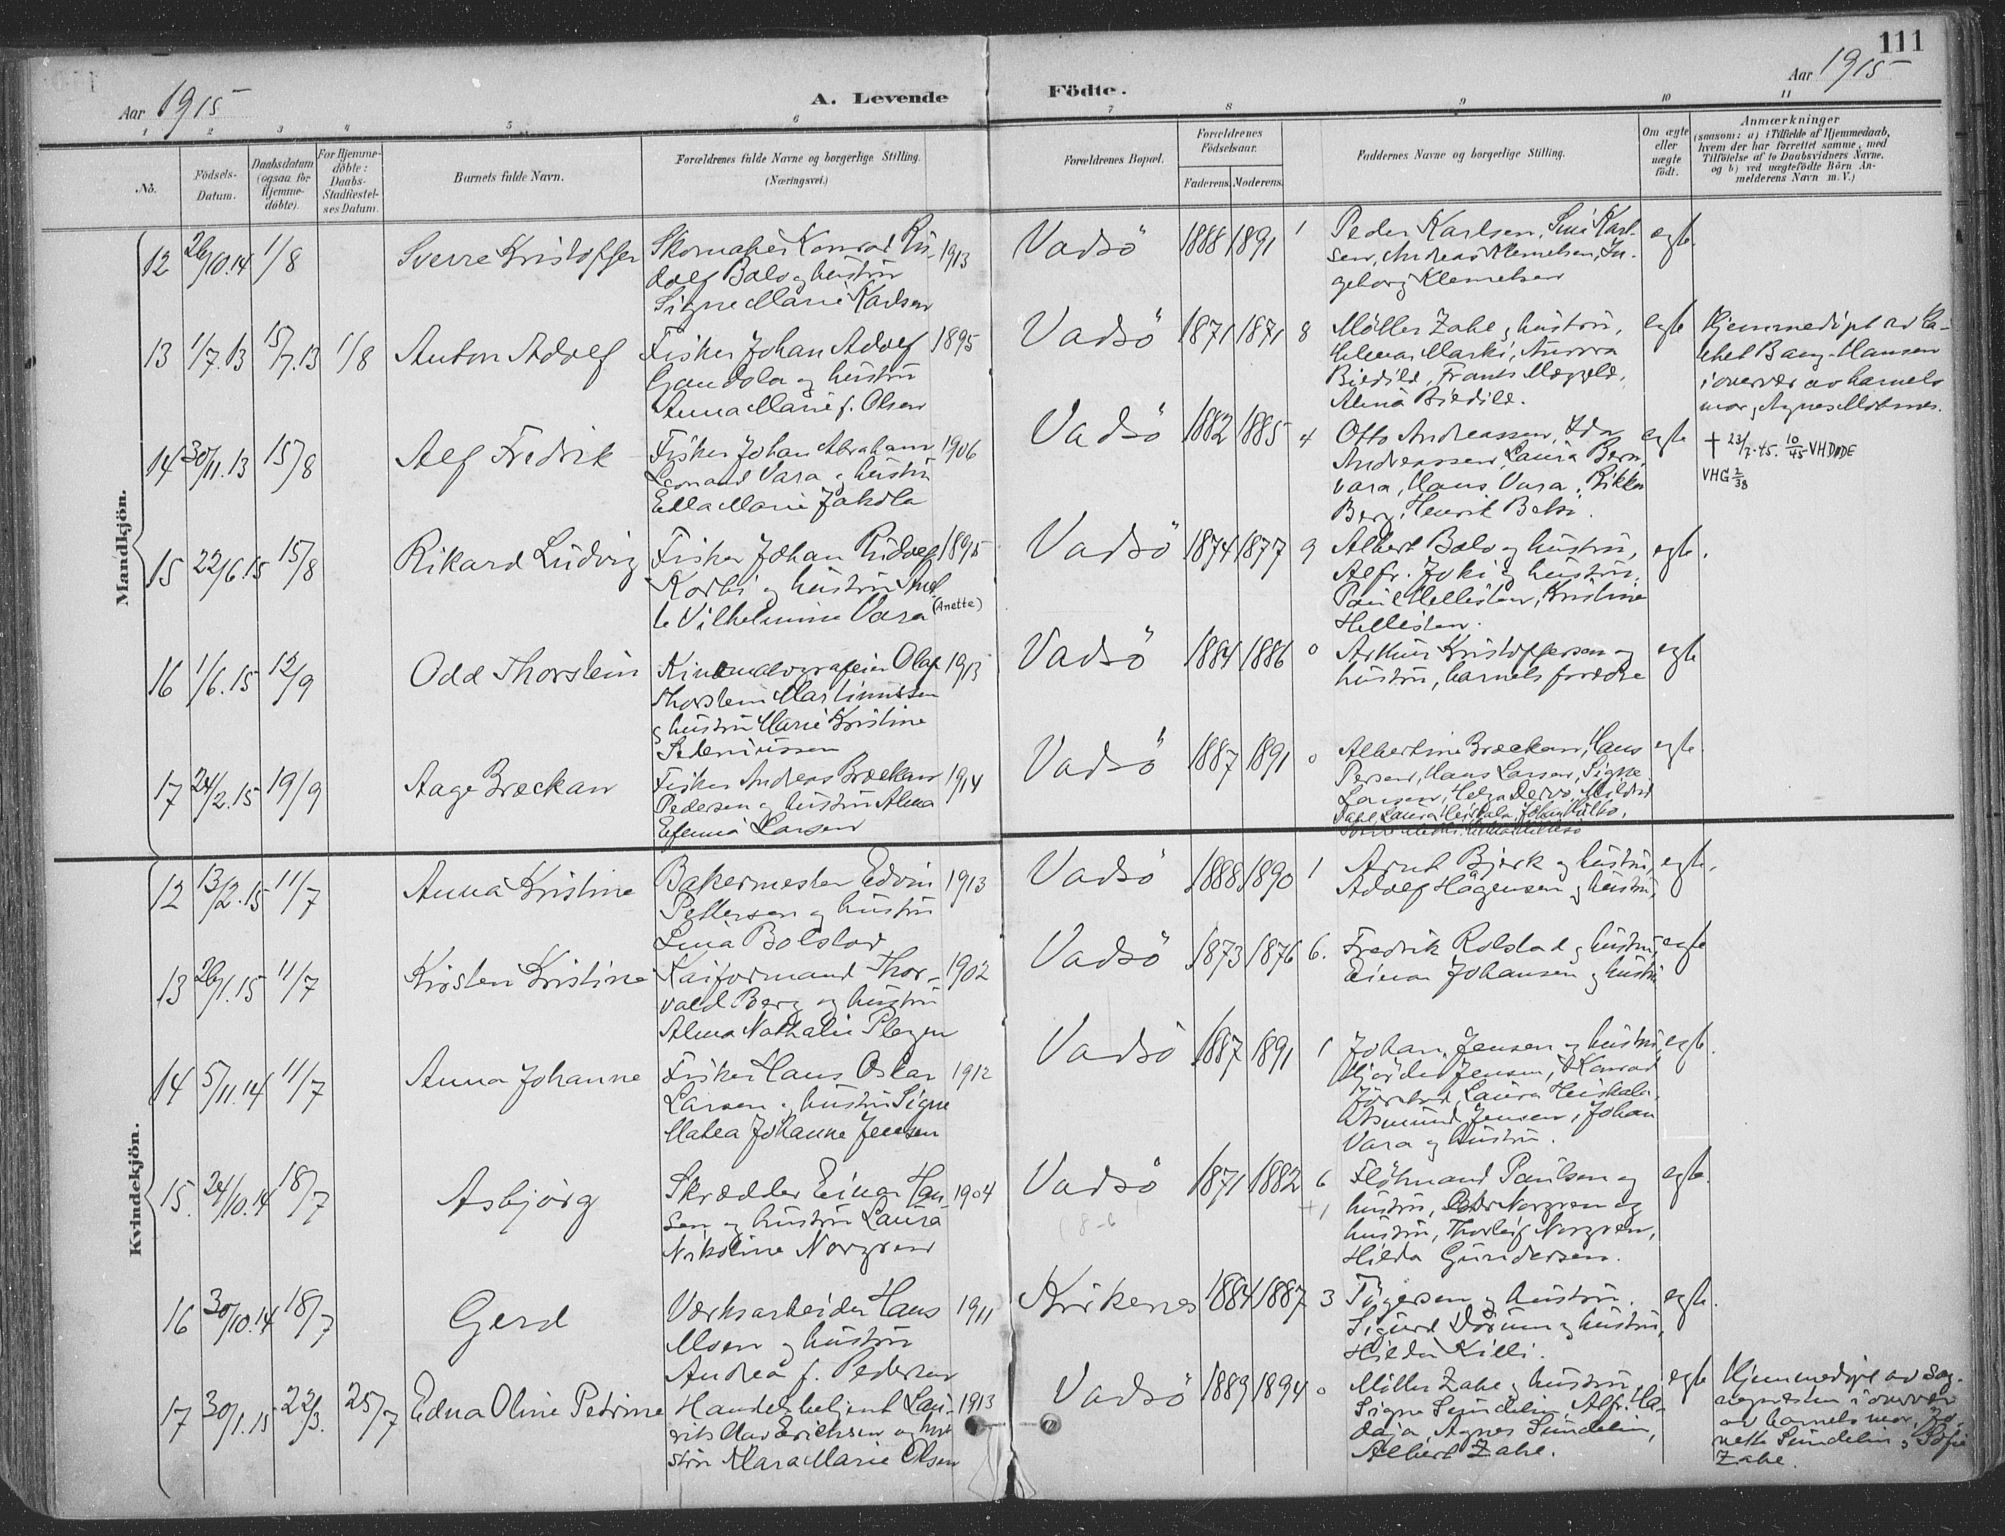 111
Aar 1915
A. Levende
Födte.
Aar 1915
1 2 3 4 5 6 7 8 9 10 11
No.
Födsels-
Datum.
Daabsdatum
(ogsaa for
Hjemme-
döbte).
For Hjemme-
döbte:
Daabs-
Stadfæstel-
ses Datum.
Barnets fulde Navn.
Forældrenes fulde Navne og borgerlige Stilling.
(Næringsvei.)
Forældrenes Bopæl.
Forældrenes
Födselsaar.
Faderens.
Moderens.
Faddernes Navne og borgerlige Stilling.
Om ægte
eller
uægte
födt.
Anmærkninger
(saasom: a) i Tilfælde af Hjemmedaab,
hvem der har forrettet samme, med
Tilföielse af to Daabsvidners Navne,
og b) ved uægtefödte Börn An-
melderens Navn m. V.)
Mandkjön.
12 26/10.14 1/8 Sverre Kristoffer
Skomaker Konrad Ru-
dolf Balo og hustru
Signe Marie Karlsen
1913 Vadsö 1888 1891 1
Peder Karlsen, Sini Karl-
sen, Andreas Klemetsen, In-
geborg Klemetsen
egte.
13 1/7.13 15/7.13 1/8 Anton Adolf
Fisker Johan Adolf
Gandola og hustru
Anna Marie f. Olsen
1895 Vadsö 1871 1871 8
Möller Zahe og hustru,
Helena Marki, Aurora
Biedilä, Frants
Alma Biedilä.
egte
Hjemmedöpt av
Bang-Hansen
i overvær av barnets
mor, Agnes
14 30/11.13 15/8 Alf Fredrik
Fisker Johan Abraham
Leonard Vara og hustru
Edla Marie Jakola
1906 Vadsö 1882 1885 4
Otto Andreassen, Ida
Andreassen, Laura Bern,
Vara, Hans Vara, Rikka
Berg, Henrik Beksi.
egte
† 23/7.45. 10/45 VHDØDE
VHG 2/38
15 22/6.15 15/8 Rikard Ludvig
Fisker Johan Rudolf
Korbi og hustru
te Vilhelmine Vara (Anette)
1895 Vadsö 1874 1877 9
Albert Balo og hustru,
Alfr. Joki og hustru,
Paul Hellisten, Kristine
Hellisten.
egte.
16 1/6.15 12/9 Odd Thorstein
Olaf
Thorstein Martinussen
og hustru Marie Kristine
1913 Vadsö 1884 1886 0
Arthur Kristoffersen og
hustru, barnets forældre
egte
17 24/2.15 19/9 Aage Brækan
Fisker Andreas Brækan
Pedersen og hustru Alma
Larsen
1914 Vadsö 1887 1891 0
Albertine Brækan, Hans
Persen, Hans Larsen, Signe
Larsen, Helga
Dahl, Laura Heiskala, Johan
egte.
Kvindekjön.
12 13/2.15 11/7 Anna Kristine
Bakermester Edvin
Pettersen og hustru
Lina Bolstad
1913 Vadsö 1888 1890 1
Arnt Bjerk og hustru,
Adolf Hågensen og hustru,
egte.
13 26/1.15 11/7 Kirsten Kristine
Kaiformand Thor-
vald Berg og hustru
Alma Nathalie Plezen
1902 Vadsö 1873 1876 6.
Fredrik Rolstad og hustru,
Einar Johansen og hustru
egte
14 5/11.14 11/7 Anna Johanne
Fisker Hans Oskar
Larsen og hustru Signe
Matea Johanne Jensen
1912 Vadsö 1887 1891 1
Johan Jensen og hustru,
Hjördis Jensen, Konrad
Laura Heiskala,
Asmund Jensen, Johan
Vara og hustru.
egte.
15. 24/10.14 18/7 Asbjörg
Skrædder Einar Han-
sen og hustru Laura
Nikoline Norgren
1904 Vadsö 1871 1882 6
(8-6
+1
Flöhmand Paulsen og
hustru, Norgren og
hustru, Thorleif Norgren,
Hilda Gundersen.
egte.
16 30/10.14 18/7 Gerd
Værksarbeider Hans
Moen og hustru
Andrea f. Pedersen
1911 Kirkenes 1884 1887 3
Tögersen og hustru.
Sigurd Dörum og hustru,
Hilda Killi.
egte.
17 30/1.15 22/3. 25/7 Edna Oline Petrine
Handelsbetjent Lau-
rits Erichsen og hu-
stru Klara Marie Olsen
1913 Vadsö 1889 1894 0
Möller Zahe og hustru,
Signe Sundelin, Alfr. Ha-
daja, Agnes Sundelin,
Albert Zahe.
egte
Hjemmedöpt av Sog-
nepresten i overvær
av barnets mor,
Sundelin, Sofie
Zahe.